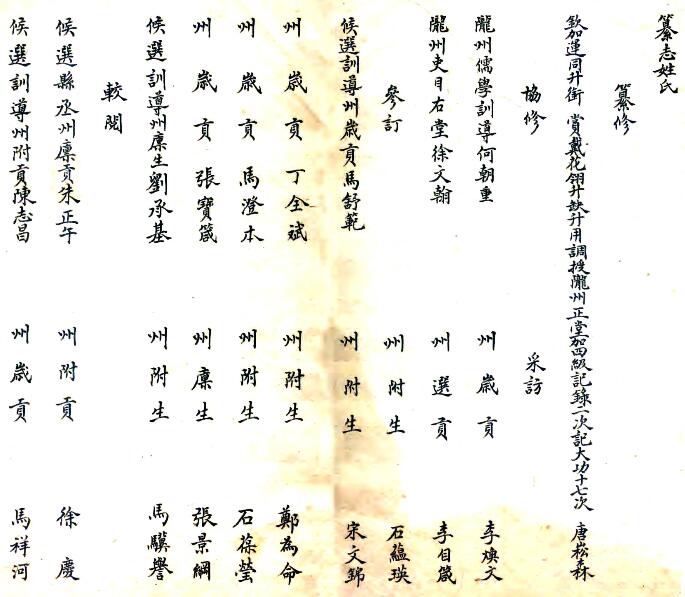 纂志姓氏
纂修
欽加運同升銜 賞戴花翎升缺升用調授隴州正堂加四級記錄二次記大功十七次 唐崧森
協修
隴州儒學訓導何朝重
隴州吏目右堂徐文翰
參訂
候選訓導州歲貢馬舒範
州歲貢 丁全斌
州歲貢 馬澄本
州歲貢 張寶箴
候選訓導州廩生劉承基
較閱
候選縣丞州廩貢朱正午
候選訓導州附貢陳志昌
采訪
州歲貢 李煥文
州選貢 李自箴
州附生 石蘊瑛
州附生 宋文錦
州附生 鄭為命
州附生 石葆瑩
州廩生 張景綱
州附生 馬驥譽
州附貢 徐慶
州歲貢 馬祥河